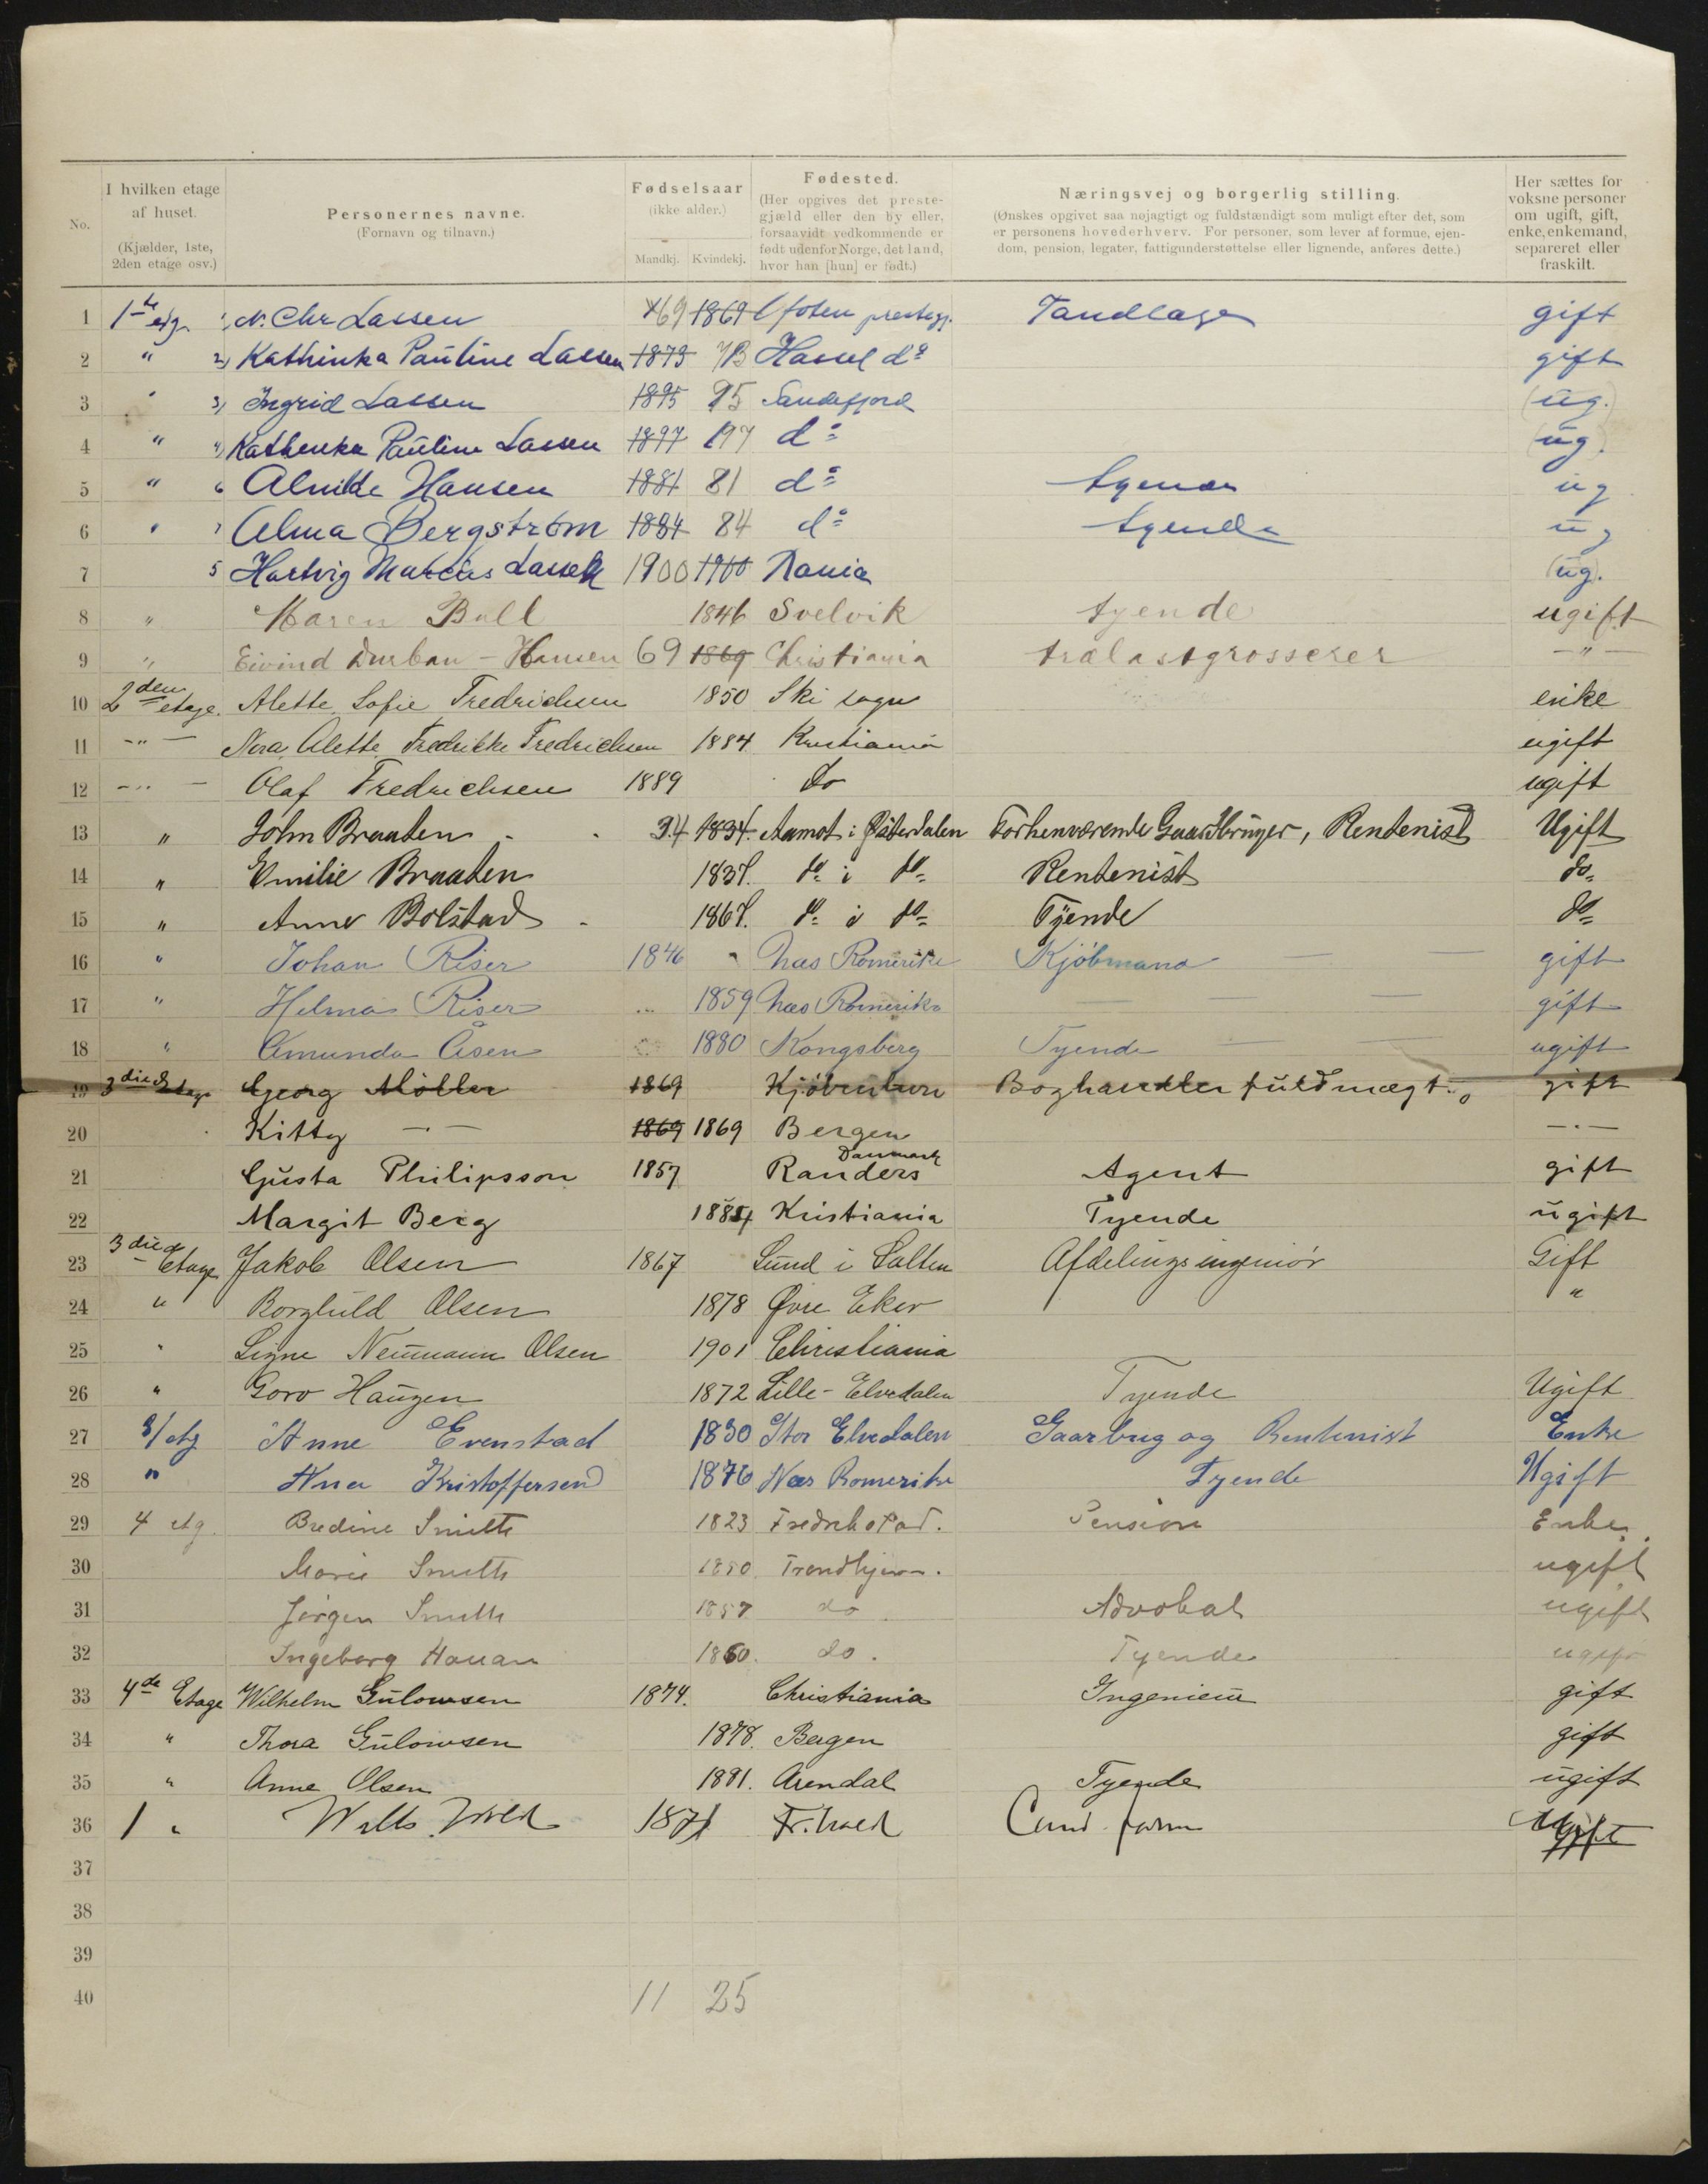 No.
I hvilken etage af huset.
(Kjælder, 1ste, 2den etage osv.)
Personernes navne.
(Fornavn og tilnavn.)
Fødselsaar
(ikke alder.)
Mandkj. Kvindekj.
Fødested.
(Her opgives det prestegjæld eller den by eller, forsaavidt vedkommende er født udenfor Norge, det land, hvor han [hun] er født.)
Næringsvej og borgerlig stilling.
(Ønskes opgivet saa nøjagtigt og fuldstændigt som muligt efter det, som er personens hovederhverv. For personer, som lever af formue, ejendom, pension, legater, fattigunderstøttelse eller lignende, anføres dette.)
Her sættes for voksne personer om ugift, gift, enke, enkemand, separeret eller fraskilt.
1 1ste etg. 1, N. Chr Lassen 69 1869 Ofoten prestegj. Tandlæge gift
2 " 2, Kathinka Pauline Lassen 1873 73 Hassel do gift
3 " 3, Ingrid Lassen 1895 95 Sandefjord (ug.)
4 " 4, Kathenka Pauline Lassen 1897 97 do (ug.)
5 " 6 Alvilde Hansen 1881 81 do tyende ug
6 " 7 Alma Bergstrøm 1884 84 do tyende ug
7 5 Hartvig Marcus Lassen 1900 1900 Kania (ug.)
8 " Maren Bull 1846 Svelvik tyende ugift
9 " Eivind Durban-Hansen 69 1869 Christiania trælastgrosserer — " —
10 2den etage. Alette Sofie Fredrichsen 1850 Ski sogn enke
11 — " — Nora Alette Fredrikke Fredrichsen 1884 Kristiania ugift
12 — " — Olaf Fredrichsen 1889 do ugift
13 " John Braaten 34 1834. Aamot i Østerdalen Forhenværende Gaardbruger, Rentenist Ugift
14 " Emilie Braaten 1837. do i do Rentenist do
15 " Anne Bolstad 1867. do i do Tjende do
16 " Johan Riser 1846 " Næs Romerike Kjøbmand gift
17 " Helma Riser 1859 Næs Romerike gift
18 " Amunda Åsen 1880 Kongsberg Tyende ugift
19 3die Etage Georg Møller 1869 Kjøbenhavn Boghandler fuldmægt. gift
20 Kitty — " — 1869 1869 Bergen — " —
21 Gusta Philipsson 1857 Randers Danmark Agent gift
22 Margit Berg 1884 Kristiania Tyende ugift
23 3die Etage Jakob Olsen 1867 Lund i Salten Afdelingsingeniør Gift
24 " Borghild Olsen 1878 Øvre Eker "
25 " Signe Neumann Olsen 1901 Christiania
26 " Goro Haugen 1872 Lille-Elvedalen Tyende Ugift
27 3/etg Anne Evenstad 1830 Stor Elvedalen Gaarbrug og Rentenist Enke
28 " Anna Kristoffersen 1876 Næs Romerike Tyende Ugift
29 4 etg. Bredine Smith 1823 Fredrikstad. Pension Enke.
30 Marie Smith 1850 Trondhjem. ugift
31 Jørgen Smith 1857 do Advokat ugift
32 Ingeborg Hauan 1860. do. Tyende ugift
33 4de Etage Wilhelm Gulowsen 1874. Christiania Ingeniør gift
34 " Thora Gulowsen 1878. Bergen gift
35 " Anne Olsen 1881. Arendal Tyende ugift
36 1 " 1871 Fr.hald Cand. farm Ugift
37
38
39
40 11 25